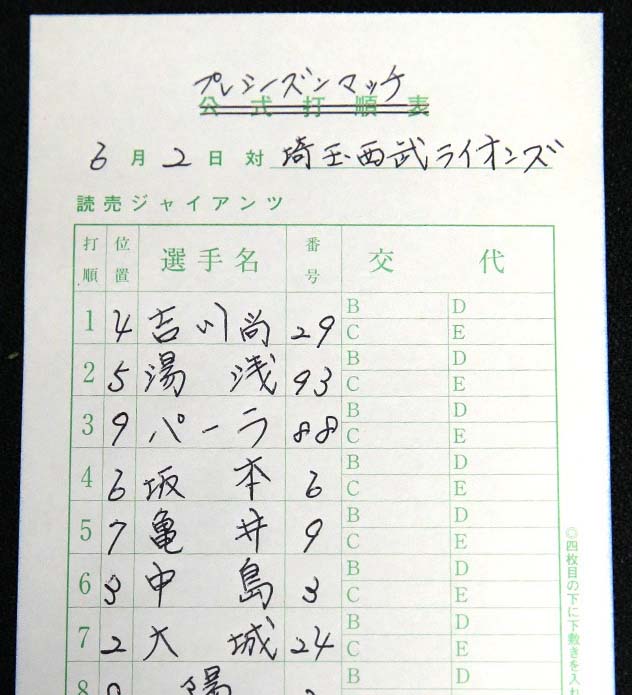 プレシーズンマッチ
公式打順表
6月2日対 埼玉西武ライオンズ
読売ジャイアンツ
打順 位置 選手名 番号 交代
1 4 吉川尚 29 B D
C E
2 5 湯浅 93 B D
C E
3 9 パーラ 88 B D
C E
4 6 坂本 6 B D
C E
5 7 亀井 9 B D
C E
6 3 中島 3 B D
C E
7 2 大城 24 B D
C E
8 陽 B D
◎四枚目の下に下敷きを入れ